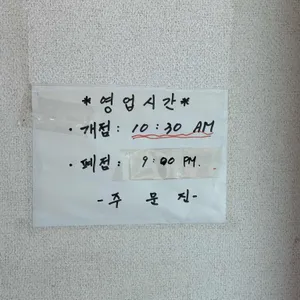 *영업시간*
·개점: 10:30 AM
·폐점: 9:00 PM.
-주문진-